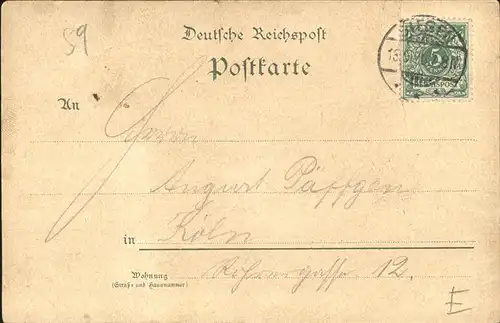 59
Deutsche Reichspost
Postkarte
An
Herrn
August Päffgen
in Köln
12.
Wohnung
(Straße und Hausnummer)
5
REICHSPOST
E